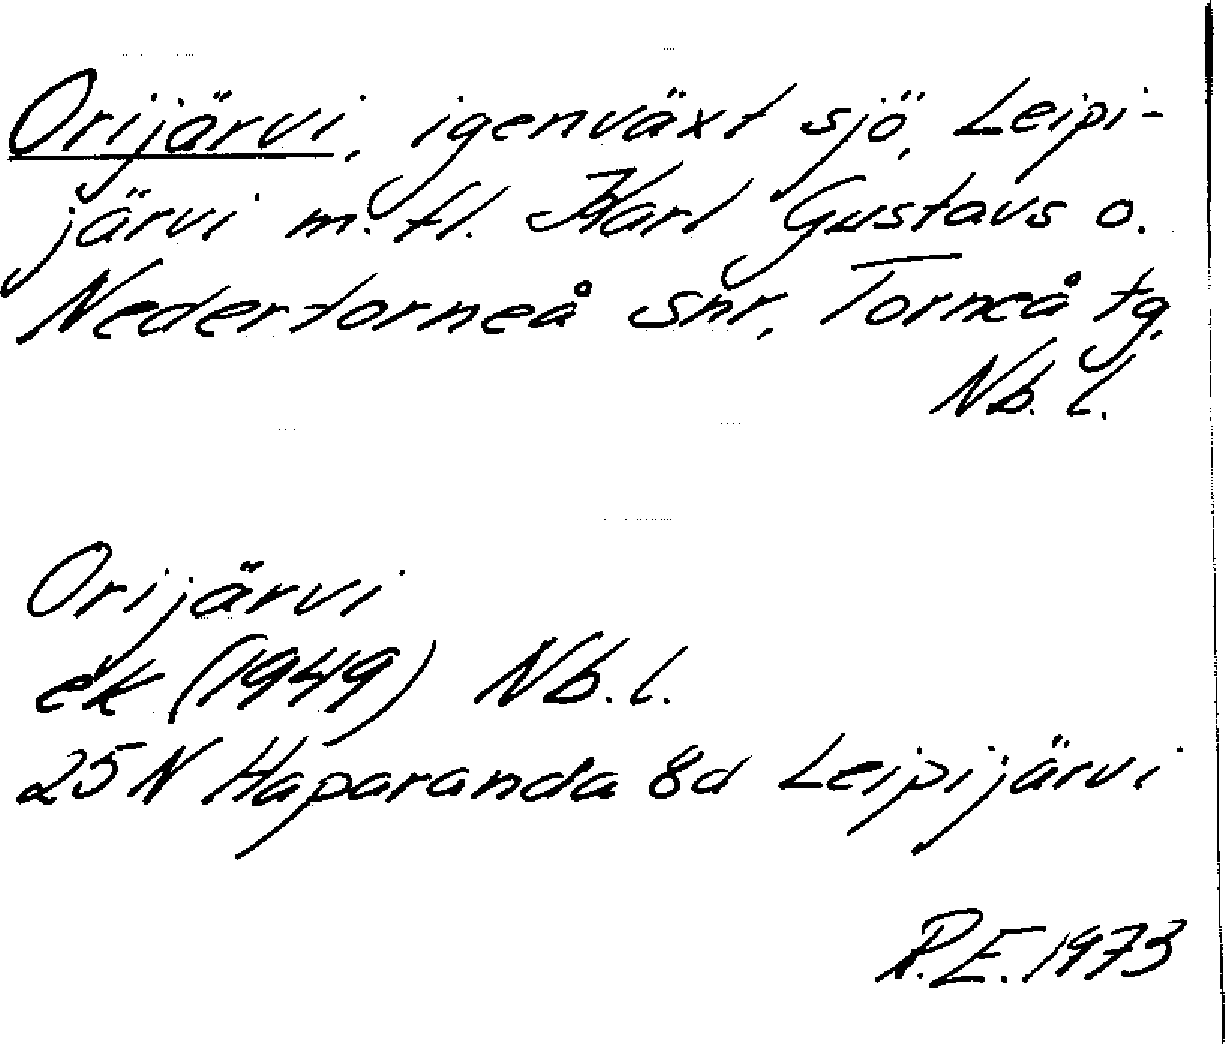 Orijärvi, igenväxt sjö, Leipi-
järvi m.fl. Karl Gustavs o.
Nedertorneå snr, Torneå tg,
Nb. l.
Orijärvi
ek (1949) Nb. l.
25 N Haparanda 8d Leipijärvi
R.E. 1973